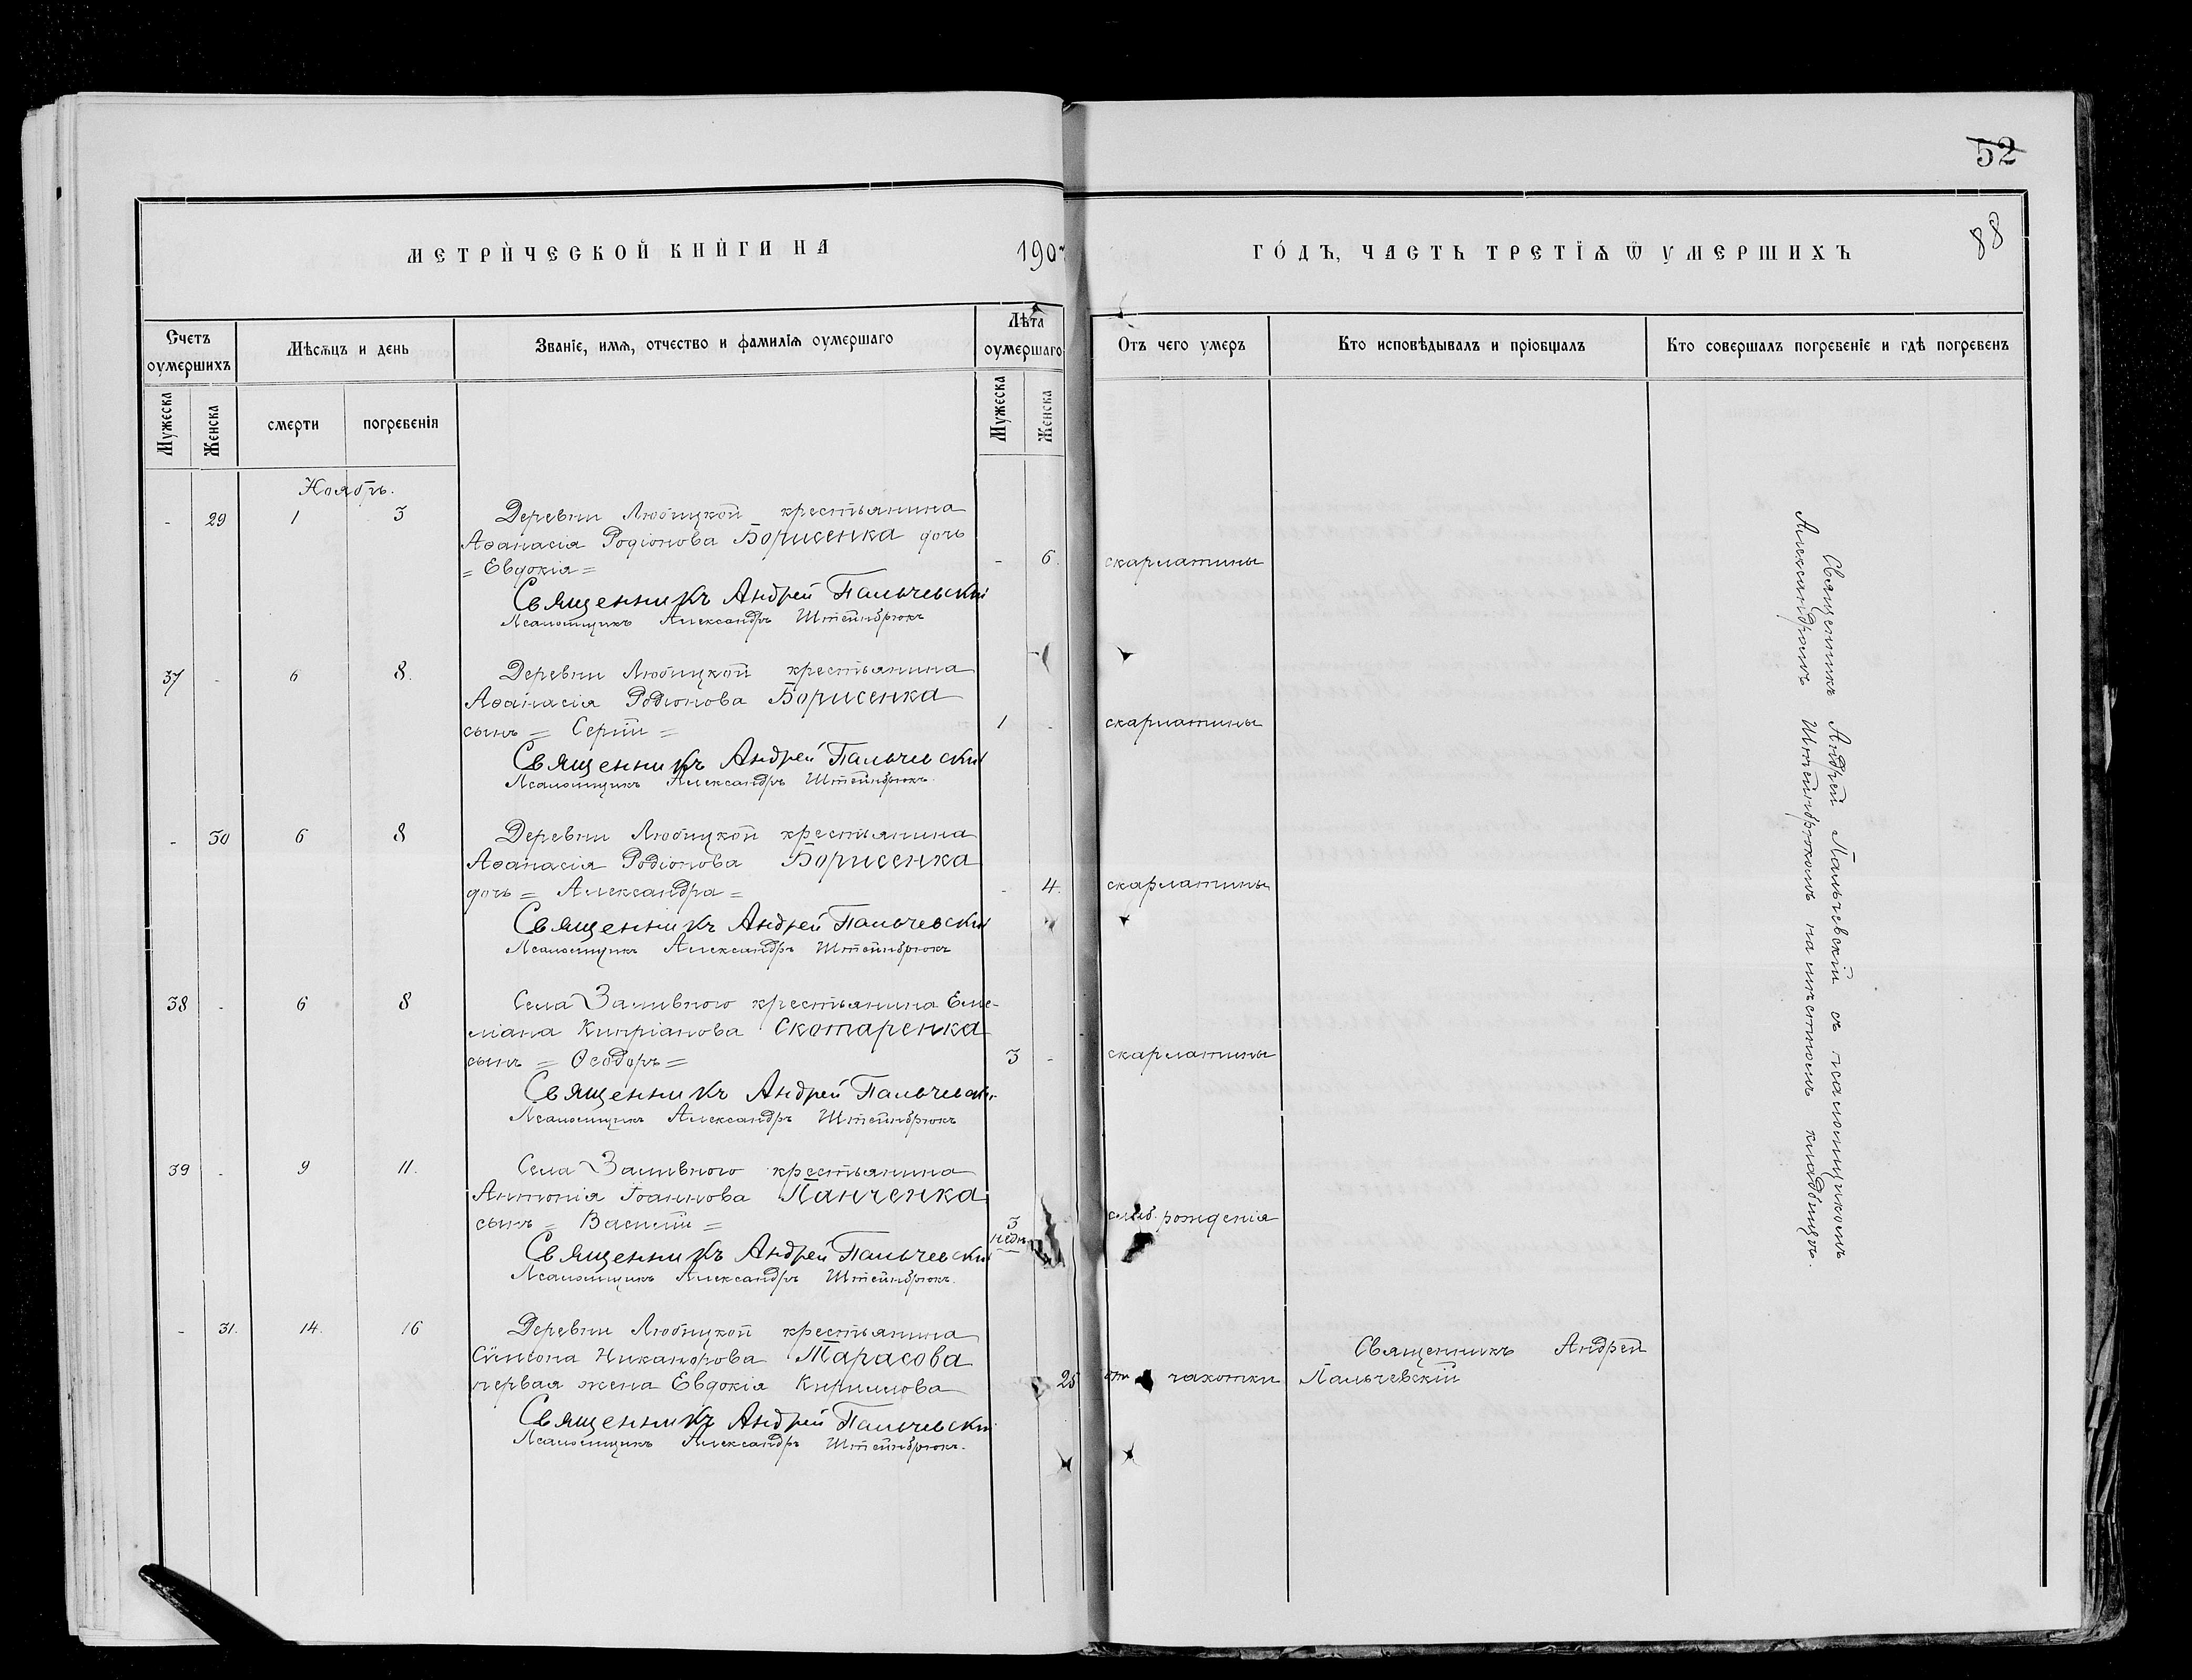 52
88
МЕТРИ́ЧЕСКОЙ КНИ́ГИ НА 190
ГО́ДЪ, ЧАСТЬ ТРЕТІѦ Ѿ УМЕРШИХЪ
Счетъ оумершихъ
Мѣсѧцъ и день
Званіе, имѧ, отчество и фамиліѧ оумершаго
Лѣта оумершаго
Отъ чего умеръ
Кто исповѣдывалъ и пріобщалъ
Кто совершалъ погребеніе и гдѣ погребенъ
Мужеска
Женска
смерти
погребенія
Мужеска
Женска
Ноябрь.
- 29 1 3 Деревни Любицкой крестьянина
Аѳанасія Родіонова Борисенка дочь
= Евдокія = - 6. скарлатины
Священникъ Андрей Пальчевскій
Псаломщикъ Александръ Штейнбрюкъ
37 - 6 8. Деревни Любицкой крестьянина
Аѳанасія Родіонова Борисенка
сынъ = Сергій = 1 - скарлатины
Священникъ Андрей Пальчевскій
Псаломщикъ Александръ Штейнбрюкъ.
- 30 6 8 Деревни Любицкой крестьянина
Аѳанасія Родіонова Борисенка
дочь = Александра = - 4. скарлатины
Священникъ Андрей Пальчевскій
Псаломщикъ Александръ Штейнбрюкъ
38 - 6 8 Села Заливного крестьянина Еме-
ліана Кипріанова Скотаренка
сынъ = Ѳеодоръ = 3 - скарлатины
Священникъ Андрей Пальчевскій
Псаломщикъ Александръ Штейнбрюкъ
39 - 9 11. Села Заливного крестьянина
Антонія Іоаннова Панченка
сынъ = Василій = 3 недѣ. слаб. рожденія
Священникъ Андрей Пальчевскій
Псаломщикъ Александръ Штейнбрюкъ.
- 31. 14. 16 Деревни Любицкой крестьянина
Сѵмеона Никанорова Тарасова
первая жена Евдокія Кириллова 25 отъ чахотки
Священникъ Андрей
Пальчевскій
Священникъ Андрей Пальчевскій
Псаломщикъ Александръ Штейнбрюкъ.
Священникъ Андрей Пальчевскій съ псаломщикомъ
Александромъ Штейнбрюкомъ на мѣстномъ кладбищѣ.